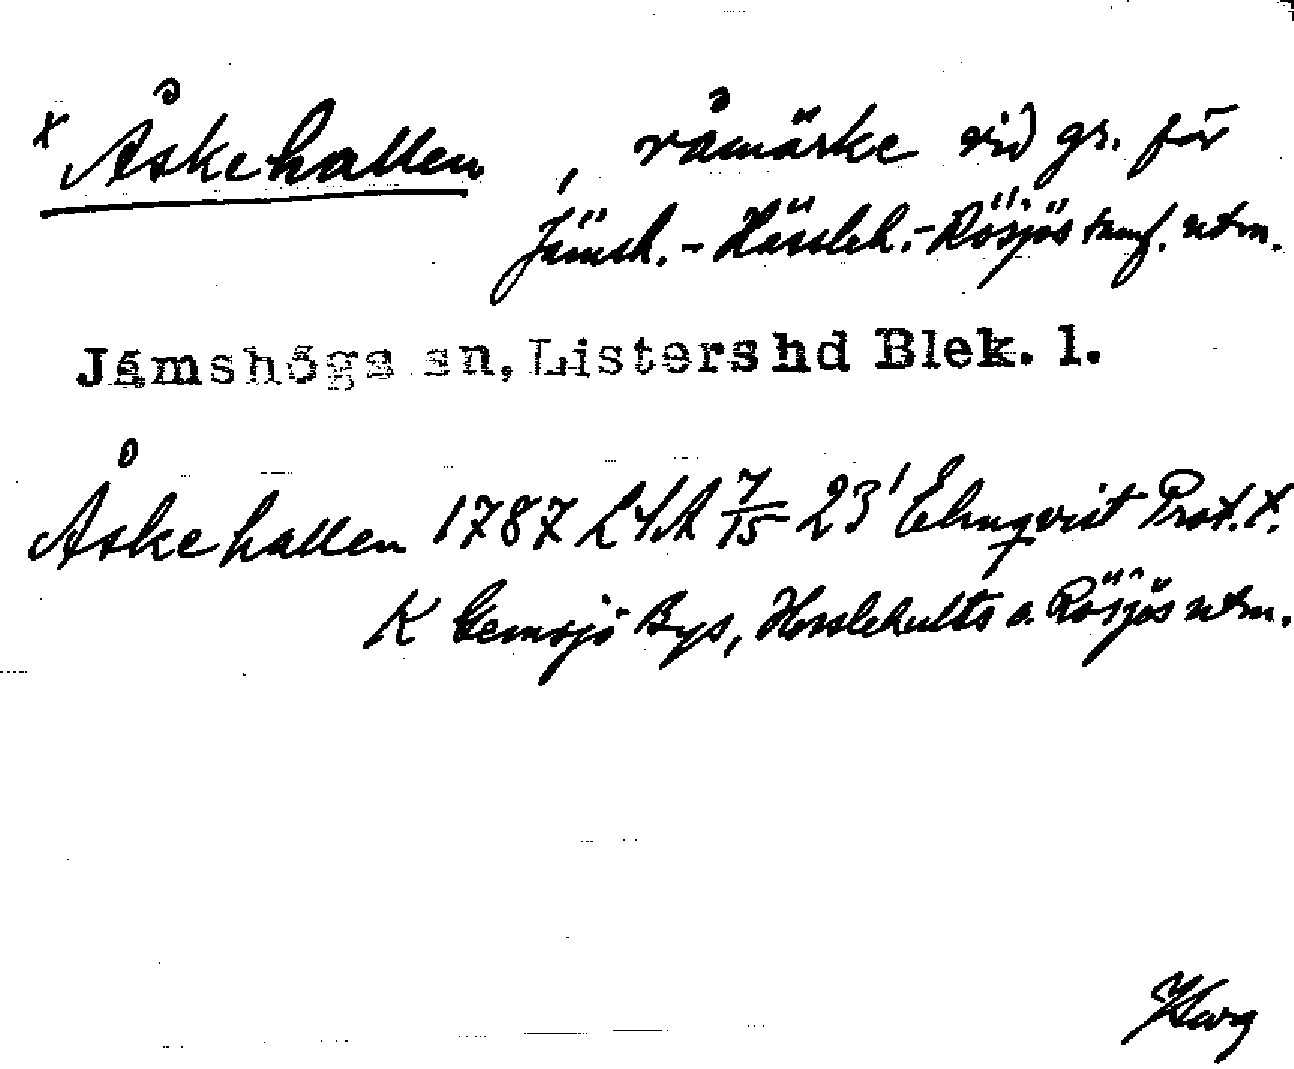 x Åskehallen, råmärke vid gr. för
Jämsh. - Hässleh.- Rösjös utm.
Jämshögs sn, Listers hd Blek. l.
Åskehallen 1787 LSA 7/15 23' Elmqvist Prot. t.
K Gemsjö Bys, Hesslehults o. Rösjös utm.